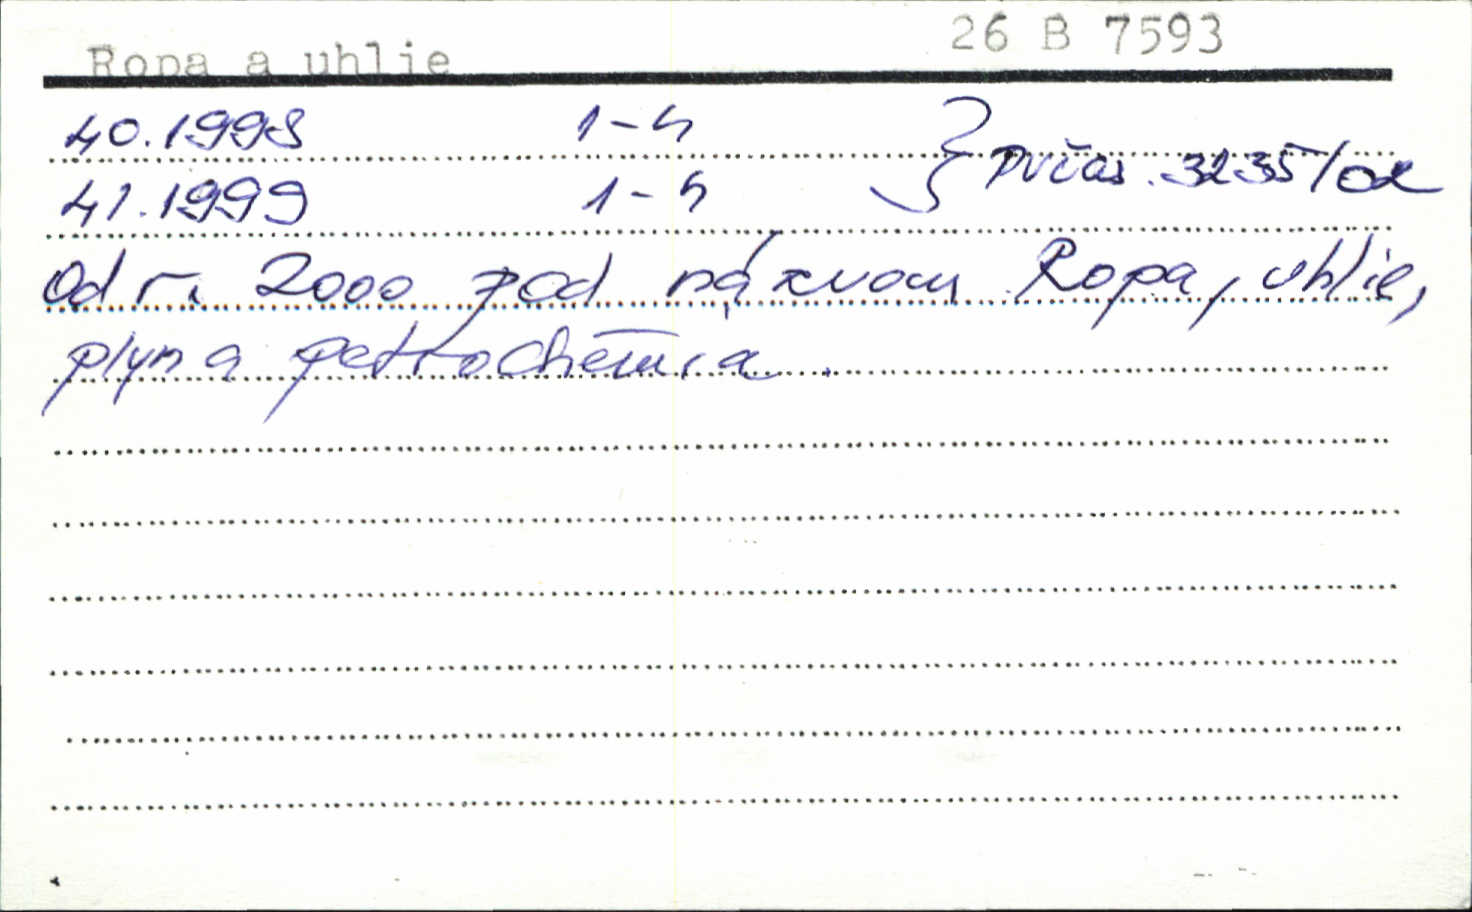 Ropa a uhlie 26 B 7593
40.1998 1-4 } Pvčas. 3235/02
41.1999 1-4
Od r. 2000 pod názvom Ropa, uhlie,
plyn a petrochémia.